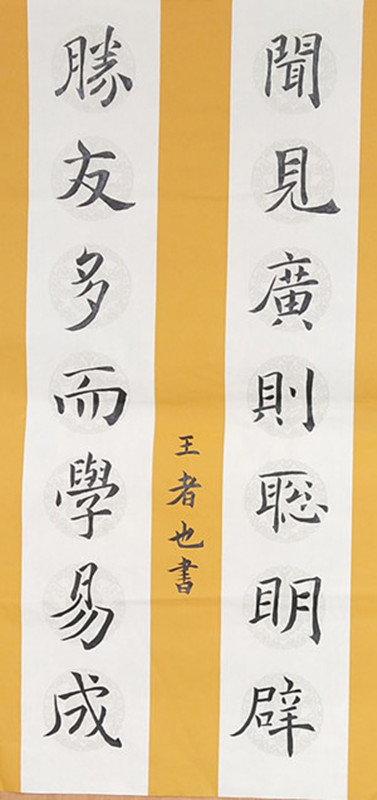 聞見廣則聡明辟
勝友多而學易成
王者也書